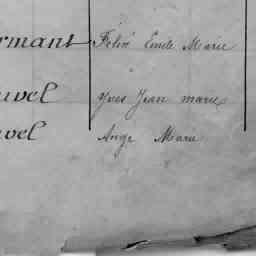 ormant Félix Emile Marie
uvel Yves Jean marie
uvel Ange Marie